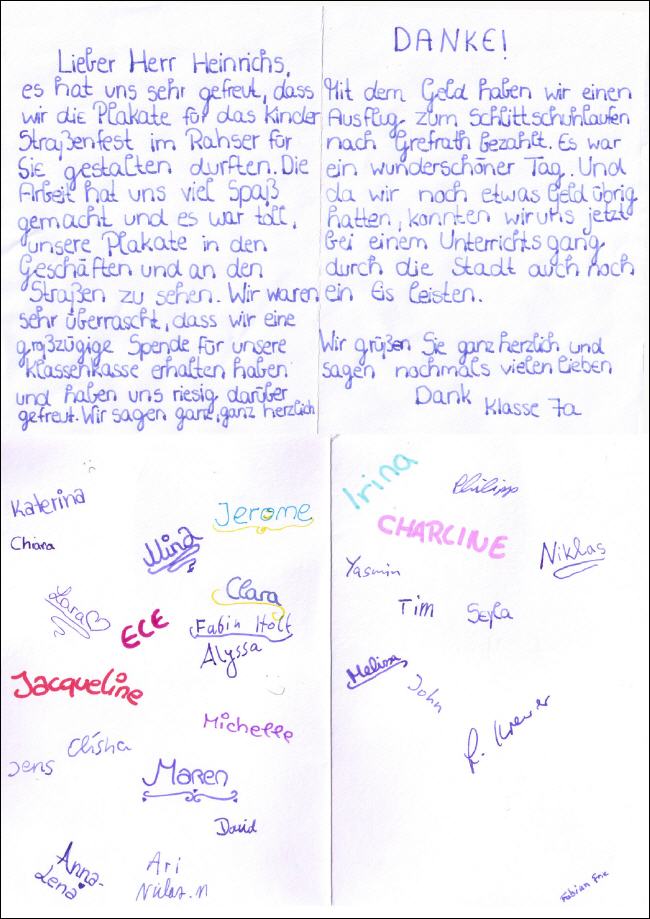 Lieber Herr Heinrichs,
es hat uns sehr gefreut, dass
wir die Plakate für das Kinder
Straßenfest im Rahser für
Sie gestalten durften. Die
Arbeit hat uns viel Spaß
gemacht und es war toll,
unsere Plakate in den
Geschäften und an den
Straßen zu sehen. Wir waren
sehr überrascht, dass wir eine
großzügige Spende für unsere
Klassenkasse erhalten haben
und haben uns riesig darüber
gefreut. Wir sagen ganz, ganz herzlich
DANKE!
Mit dem Geld haben wir einen
Ausflug zum Schlittschuhlaufen
nach Grefrath bezahlt. Es war
ein wunderschöner Tag. Und
da wir noch etwas Geld übrig
hatten, konnten wir uns jetzt
bei einem Unterrichtsgang
durch die Stadt auch noch
ein Eis leisten.
Wir grüßen Sie ganz herzlich und
sagen nochmals vielen lieben
Dank
Klasse 7a
Katerina
Jerome
Chiara
Mina
Lara
Clara
ECE
Fabin Holt
Alyssa
Jacqueline
Michelle
Elisha
Jens
Maren
David
Anna-
Lena
Ari
Niklas.N
Irina
Philipp
CHARLINE
Niklas
Yasmin
Tim
Seyla
Melissa
John
Fabian